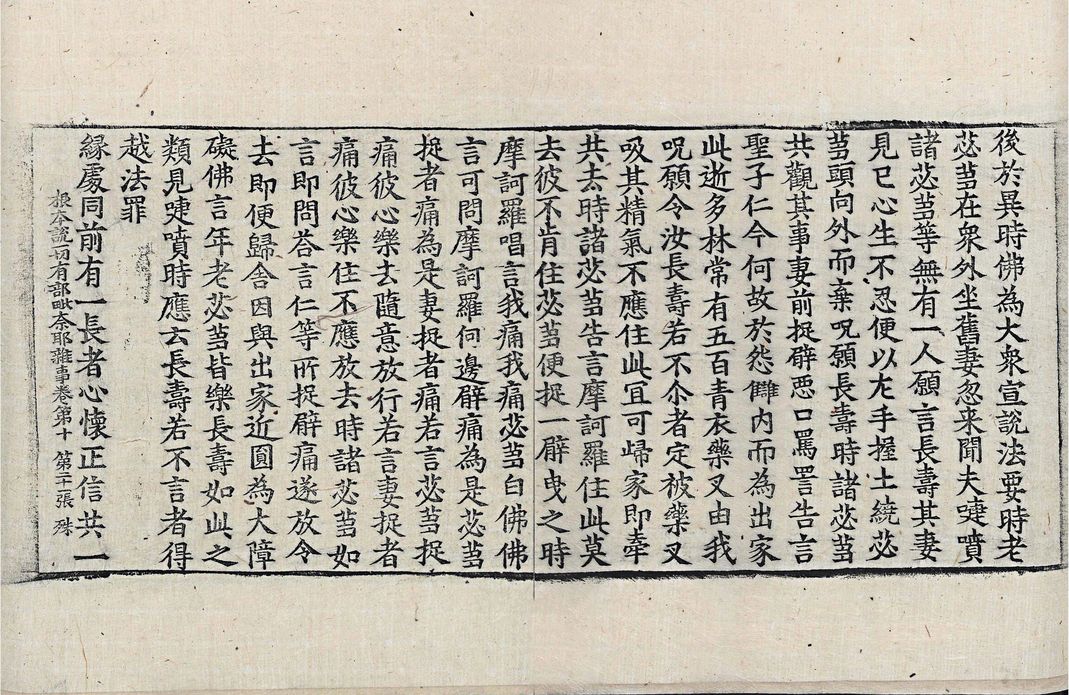 後於異時佛為大衆宣說法要時老
苾芻在衆外坐舊妻忽来聞夫嚏噴
諸苾芻等無有一人願言長壽其妻
見已心生不忍便以左手握土繞苾
芻頭向外而棄呪願長壽時諸苾芻
共觀其事妻前捉臂惡口罵詈告言
聖子仁今何故於怨讎内而為出家
此逝多林常有五百青衣藥叉由我
呪願令汝長壽若不尒者定被藥叉
吸其精氣不應住此冝可歸家即牽
共去時諸苾芻告言摩訶羅住此莫
去彼不肯住苾芻便捉一臂曳之時
摩訶羅唱言我痛我痛苾芻白佛佛
言可問摩訶羅何邊臂痛為是苾芻
捉者痛為是妻捉者痛若言苾芻捉
痛彼心樂去隨意放行若言妻捉者
痛彼心樂住不應放去時諸苾芻如
言即問荅言仁等所捉臂痛遂放令
去即便歸舎因與出家近圓為大障
礙佛言年老苾芻皆樂長壽如此之
類見嚏噴時應云長壽若不言者得
越法罪
縁處同前有一長者心懷正信共一
根本說一切有部毗奈耶雜事卷第十 第二十張 殊